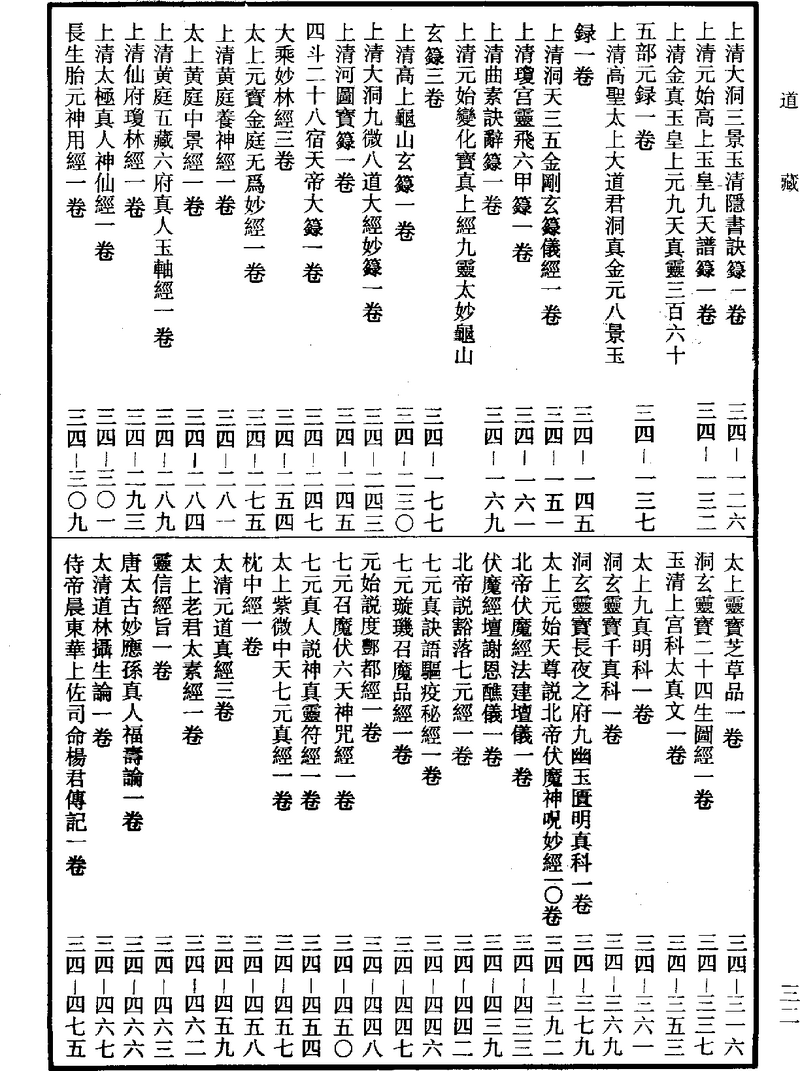 道藏
三二
上清大洞三景玉清隱書訣籙一卷 三四—一二六
上清元始高上玉皇九天譜籙一卷 三四—一三二
上清金真玉皇上元九天真靈三百六十
五部元録一卷 三四—一三七
上清高聖太上大道君洞真金元八景玉
録一卷 三四—一四五
上清洞天三五金剛玄籙儀經一卷 三四—一五一
上清瓊宮靈飛六甲籙一卷 三四—一六一
上清曲素訣辭籙一卷 三四—一六九
上清元始變化寶真上經九靈太妙龜山
玄籙三卷 三四—一七七
上清高上龜山玄籙一卷 三四—二三〇
上清大洞九微八道大經妙籙一卷 三四—二四三
上清河圖寶籙一卷 三四—二四五
四斗二十八宿天帝大籙一卷 三四—二四七
大乘妙林經三卷 三四—二五四
太上元寶金庭无爲妙經一卷 三四—二七五
上清黄庭養神經一卷 三四—二八一
太上黄庭中景經一卷 三四—二八四
上清黄庭五藏六府真人玉軸經一卷 三四—二八九
上清仙府瓊林經一卷 三四—二九三
上清太極真人神仙經一卷 三四—三〇一
長生胎元神用經一卷 三四—三〇九
太上靈寶芝草品一卷 三四—三一六
洞玄靈寶二十四生圖經一卷 三四—三三七
玉清上宮科太真文一卷 三四—三五三
太上九真明科一卷 三四—三六一
洞玄靈寶千真科一卷 三四—三六九
洞玄靈寶長夜之府九幽玉匱明真科一卷 三四—三七九
太上元始天尊説北帝伏魔神呪妙經一〇卷 三四—三九二
北帝伏魔經法建壇儀一卷 三四—四三三
伏魔經壇謝恩醮儀一卷 三四—四三九
北帝説豁落七元經一卷 三四—四四二
七元真訣語驅疫秘經一卷 三四—四四六
七元璇璣召魔品經一卷 三四—四四七
元始説度酆都經一卷 三四—四四八
七元召魔伏六天神咒經一卷 三四—四五〇
七元真人説神真靈符經一卷 三四—四五四
太上紫微中天七元真經一卷 三四—四五七
枕中經一卷 三四—四五八
太清元道真經三卷 三四—四五九
太上老君太素經一卷 三四—四六二
靈信經旨一卷 三四—四六三
唐太古妙應孫真人福壽論一卷 三四—四六六
太清道林攝生論一卷 三四—四六七
侍帝晨東華上佐司命楊君傳記一卷 三四—四七五